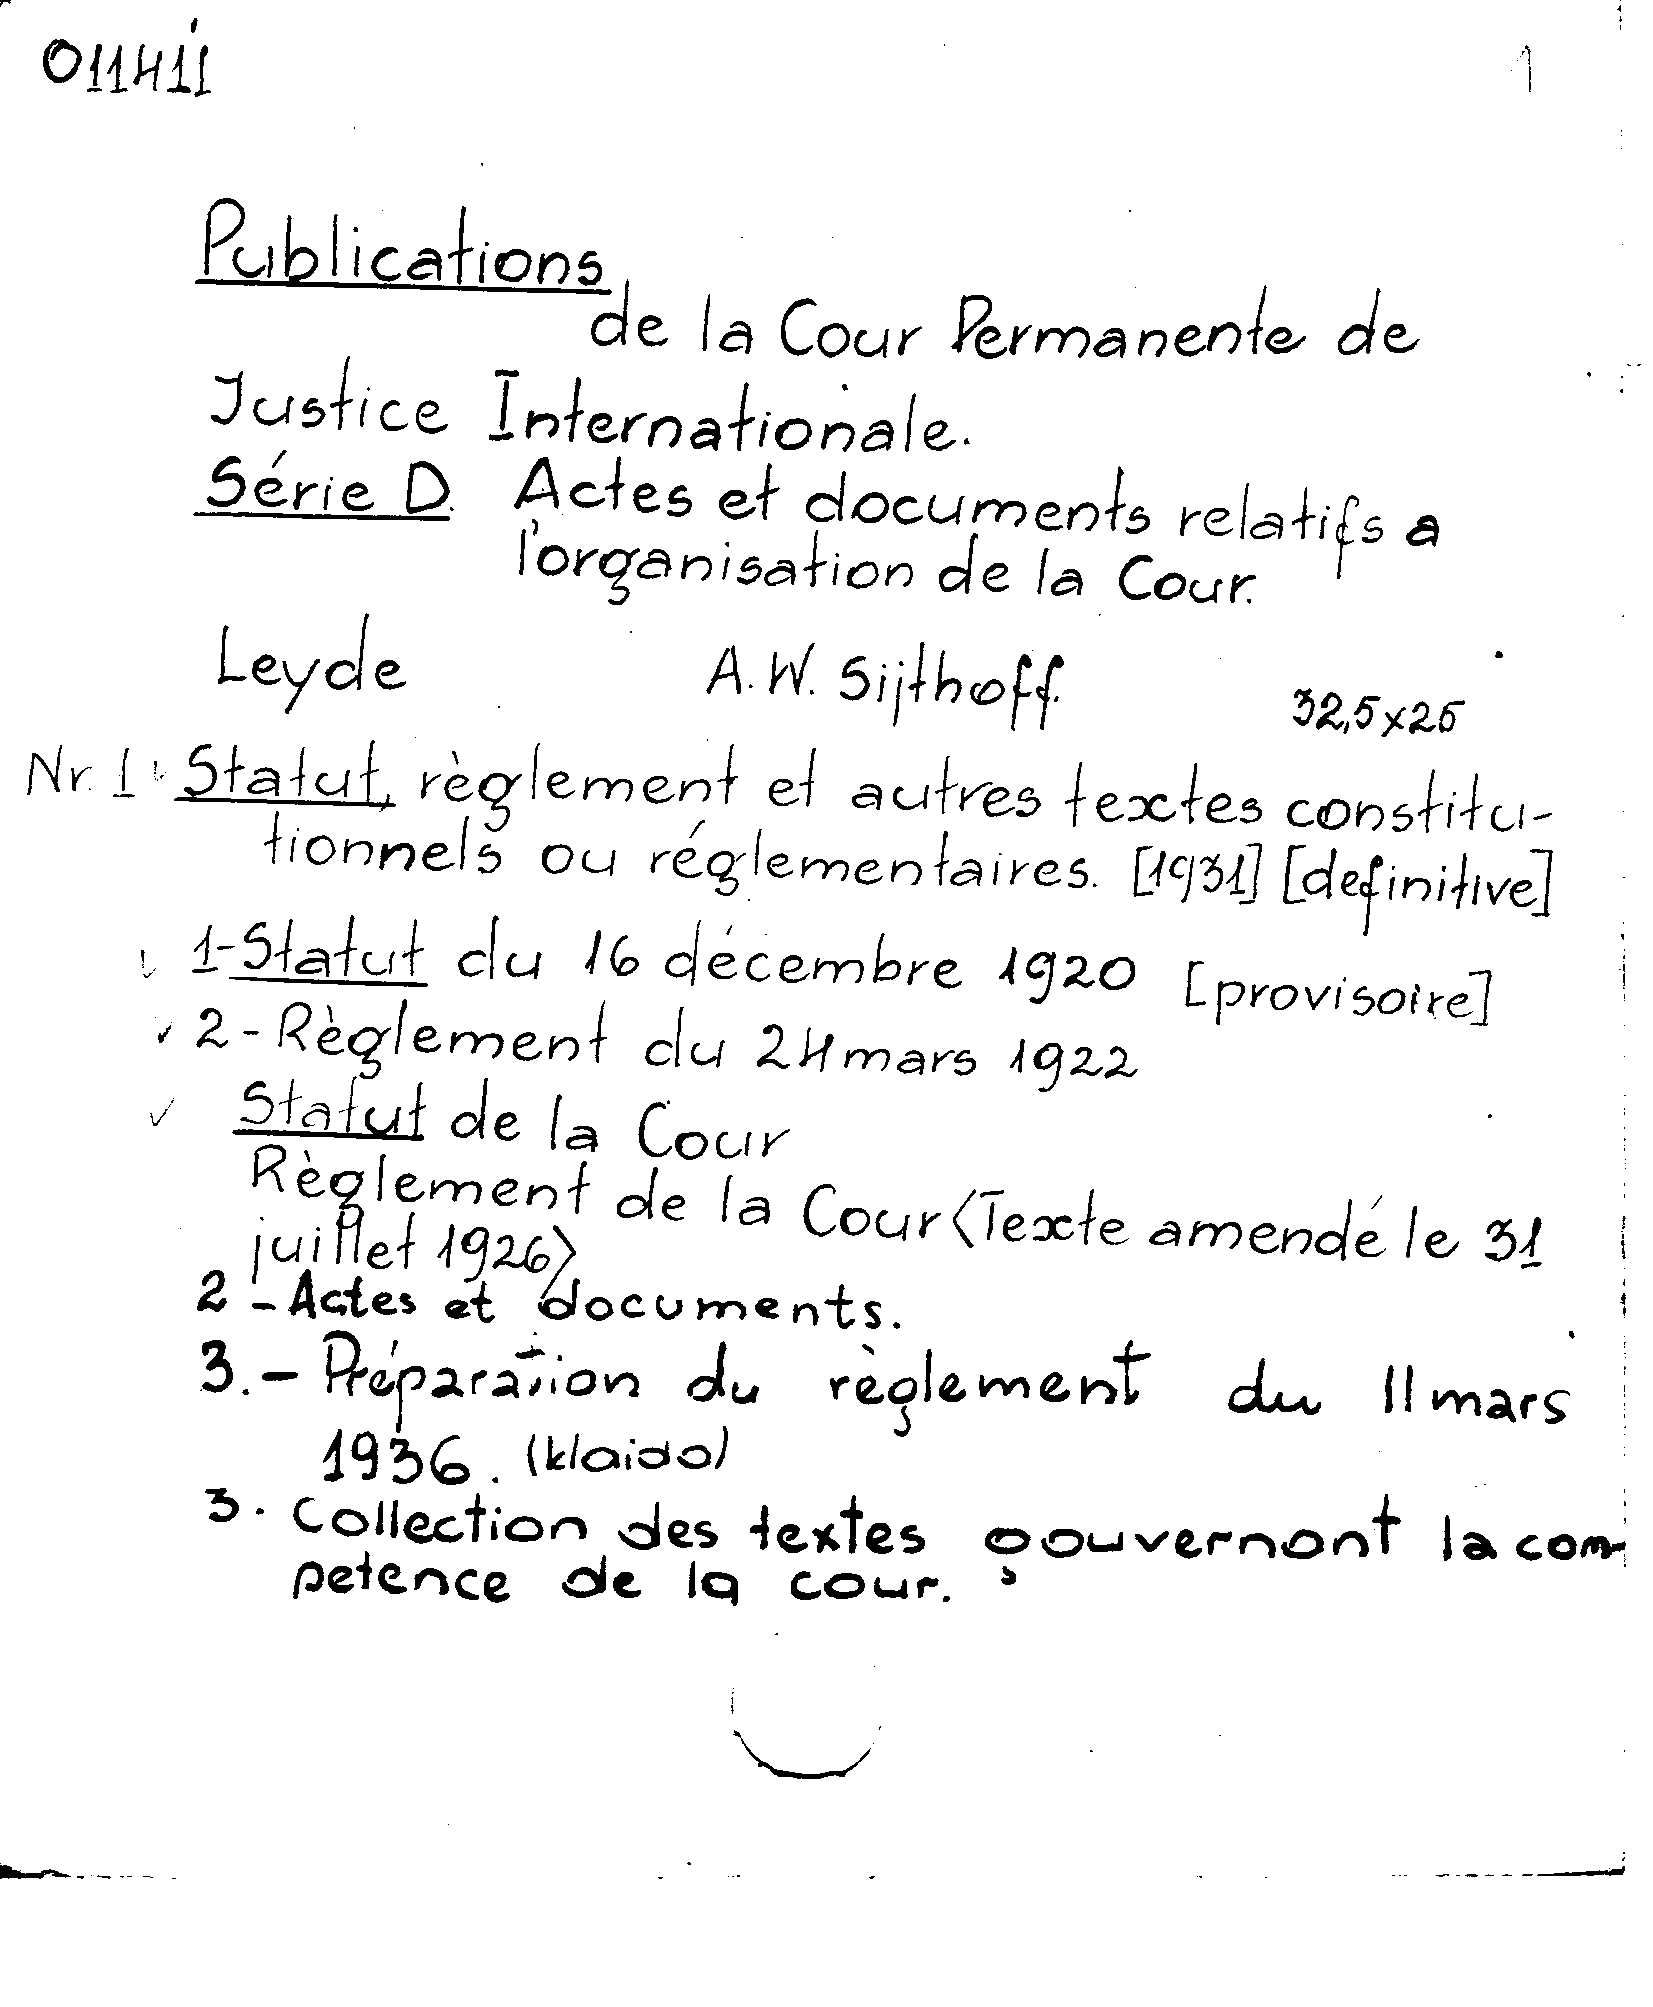 011411
1
Publications
de la Cour Permanente de
Justice Internationale.
Série D. Actes et documents relatifs a
l'organisation de la Cour.
Leyde A.W. Sijthoff.
32,5x25
Nr. 1 Statut, règlement et autres textes constitu-
tionnels ou réglementaires. [1931] [definitive]
1-Statut du 16 décembre 1920 [provisoire]
2-Règlement du 24 mars 1922
Statut de la Cour
Règlement de la Cour <Texte amendé le 31
juillet 1926>
2 - Actes et documents.
3.- Préparation du règlement du 11 mars
1936.
3. Collection des textes gouvernont la com-
petence de la cour.